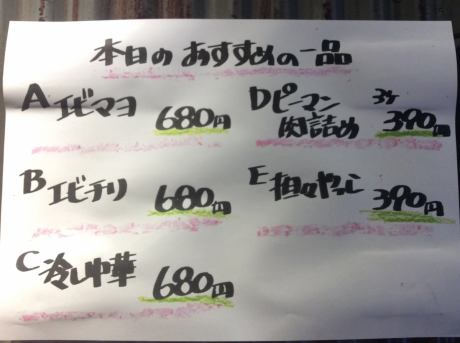 本日のおすすめの一品
A エビマヨ 680円
B エビチリ 680円
C 冷し中華 680円
D ピーマン 3ケ
肉詰め 390円
E 担々やっこ 390円